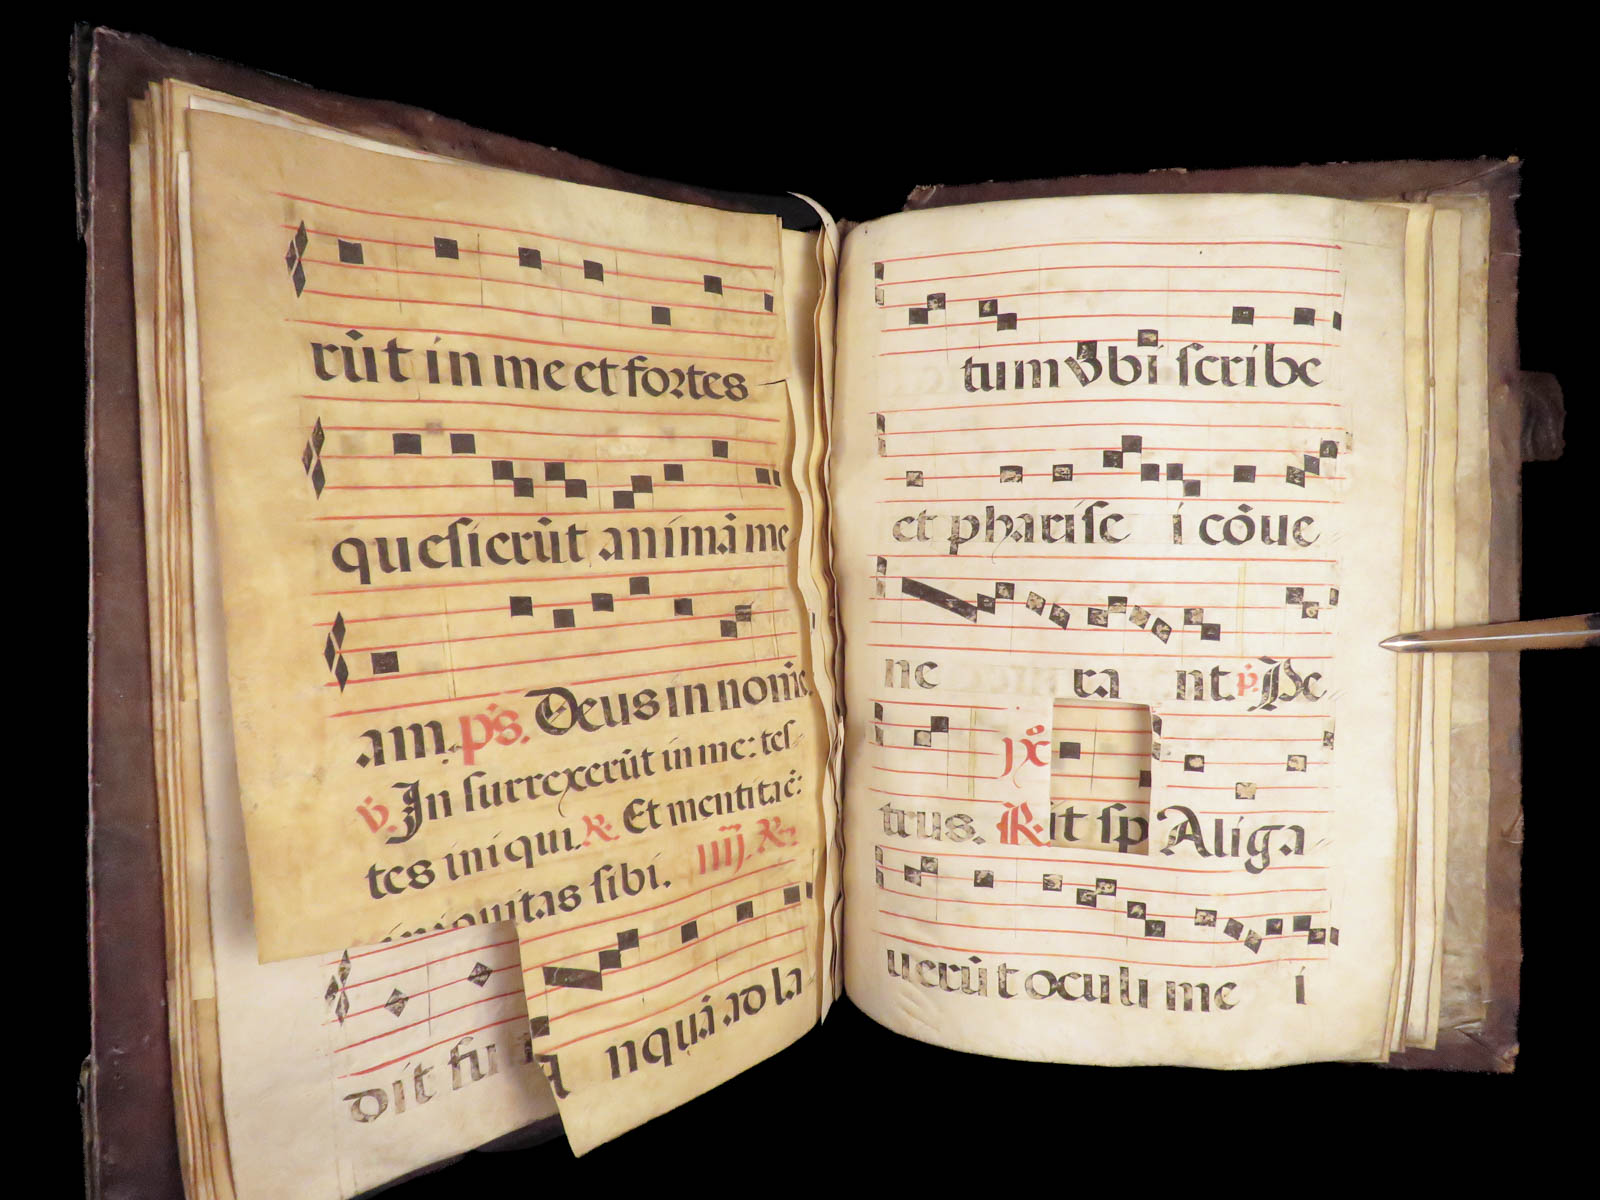 rūt in me et fortes
quesierūt animā me
am. ps. Deus in nomīe.
℣. In surrexerūt in me: tes-
tes iniqui. ℟. Et mentitaē:
iniquitas sibi. IIIJ. ℟
dit fu
nquā ad la
tum vbi scribe
et pharise i cōue
ne ra nt. p̄. Pe
trus. ℟. it sp Aliga
uerūt oculi me i